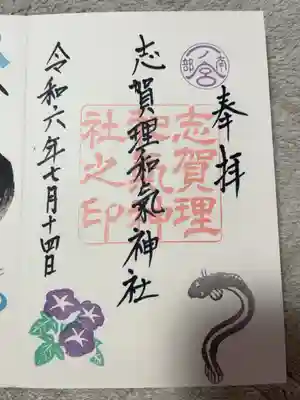 奉拝
南部
一ノ宮
志賀理和氣神社
志賀理
和氣神
社之印
令和六年七月十四日